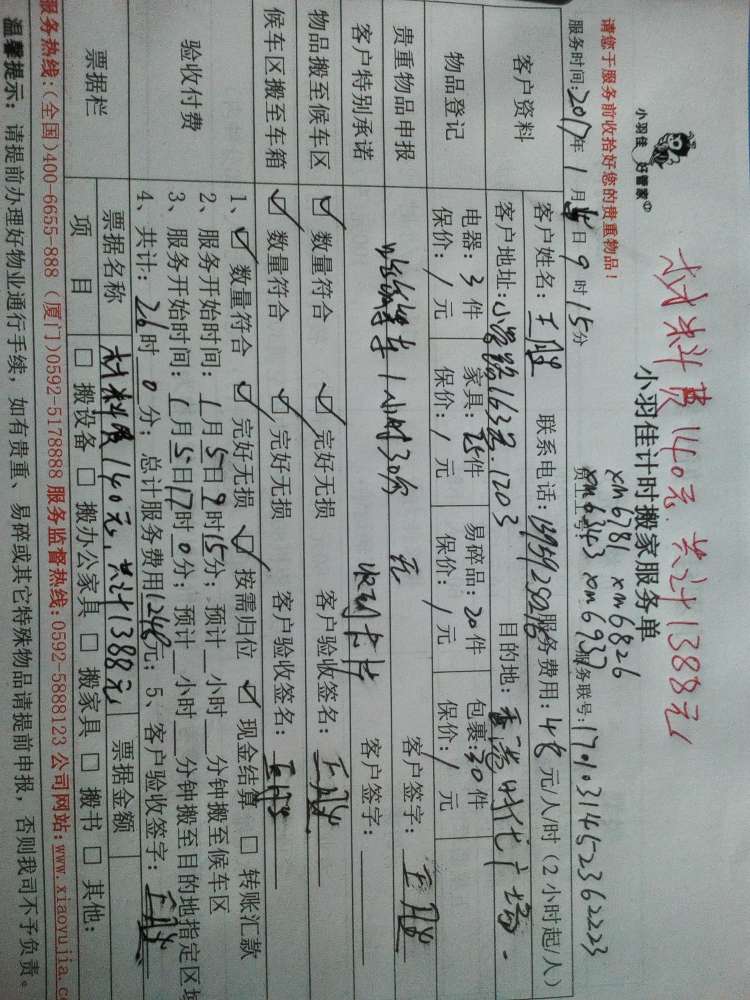 材料费140元 共计1388元
小羽佳 好管家
小羽佳计时搬家服务单
请您于服务前收拾好您的贵重物品！
xm6781 xm6826
xm6343 xm6937
服务时间：2017年1月5日9时15分
服务联号：170103145236222 3
客户资料
客户姓名：王胜 联系电话： 服务费用：48元/人/时（2小时起/人）
客户地址： 路163号1203 目的地：香港时代广场
物品登记
电器：3件 家具：25件 易碎品：20件 包裹：30件
保价：/元 保价：/元 保价：/元 保价：/元
贵重物品申报
1小时30分 元 客户签字：王胜
客户特别承诺
收到卡片 客户签字：
物品搬至候车区
☑ 数量符合 ☑ 完好无损 客户验收签名：王胜
候车区搬至车箱
☑ 数量符合 ☑ 完好无损 客户验收签名：王胜
验收付费
1、☑ 数量符合 ☑ 完好无损 ☑ 按需归位 ☑ 现金结算 □ 转账汇款
2、服务开始时间：1月5日9时15分；预计 小时 分钟搬至候车区
3、服务开始时间：1月5日17时0分；预计 小时 分钟搬至目的地指定区域
4、共计：26时0分；总计服务费用1248元；5、客户验收签字：王胜
票据栏
票据名称 材料费140元，共计1388元 票据金额
项目 □ 搬设备 □ 搬办公家具 □ 搬家具 □ 搬书 □ 其他：
服务热线：（全国）400-6655-888（厦门）0592-5178888 服务监督热线：0592-5888123 公司网站：www.xiaoyujia.c
温馨提示：请提前办理好物业通行手续，如有贵重、易碎或其它特殊物品请提前申报，否则我司不予负责。